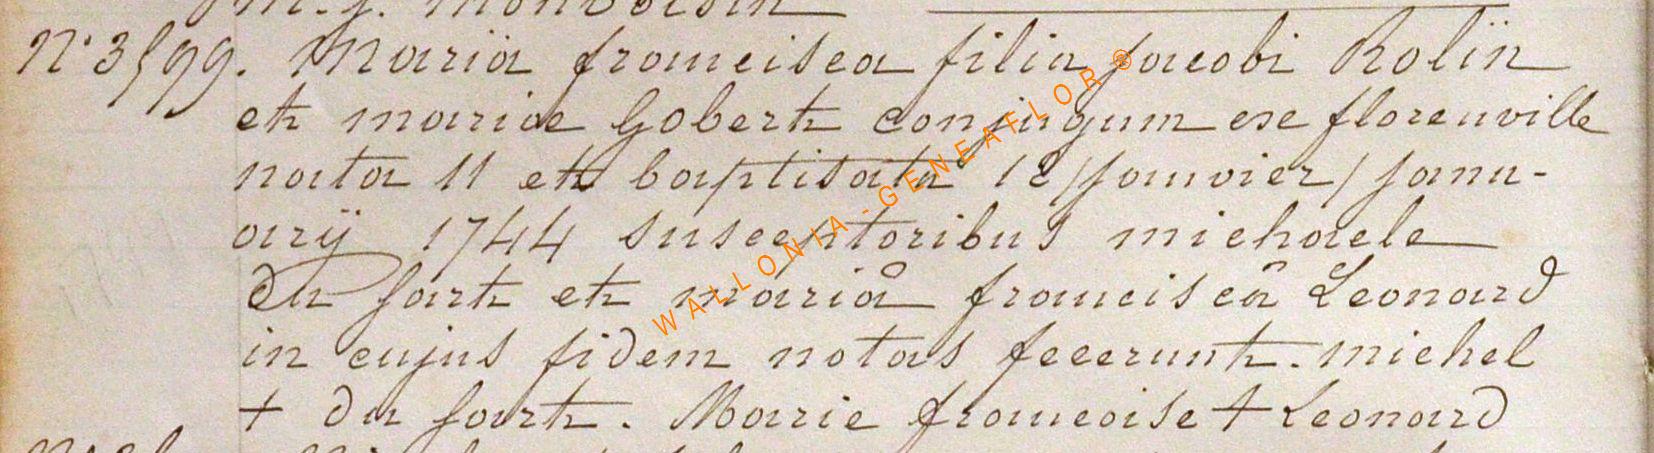 m. j. monvoisin
N° 3599. Mariä francisca filia jacobi Rolïn
et mariae Gobert conjugum ex florenville
nata 11 et baptisata 12 /janvier/ janu-
arÿ 1744 susceptoribus michaele
du fart et mariâ franciscâ Leonard
in cujus fidem notas fecerunt. michel
+ du fart. Marie francoise + Leonard
WALLONIA-GENEAFLOR®